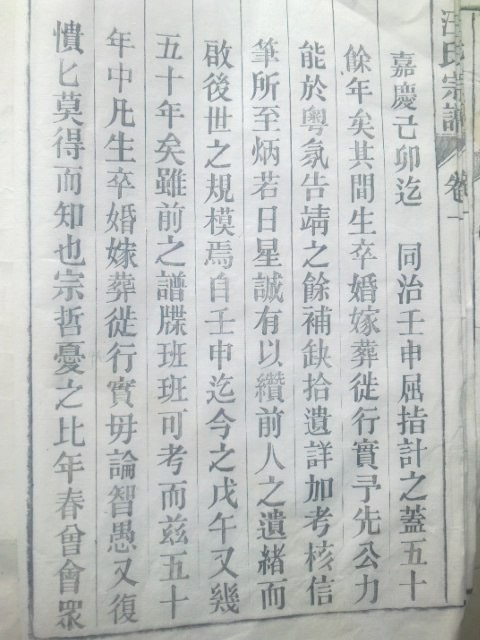 汪氏宗譜 卷一
嘉慶己卯迄 同治壬申屈指計之蓋五十
餘年矣其間生卒婚嫁葬徙行實予先公力
能於粵氛告靖之餘補缺拾遺詳加考核信
筆所至炳若日星誠有以纘前人之遺緒而
啟後世之規模焉自壬申迄今之戊午又幾
五十年矣雖前之譜牒班班可考而茲五十
年中凡生卒婚嫁葬徙行實毋論智愚又復
憒匕莫得而知也宗哲憂之比年春曾會眾